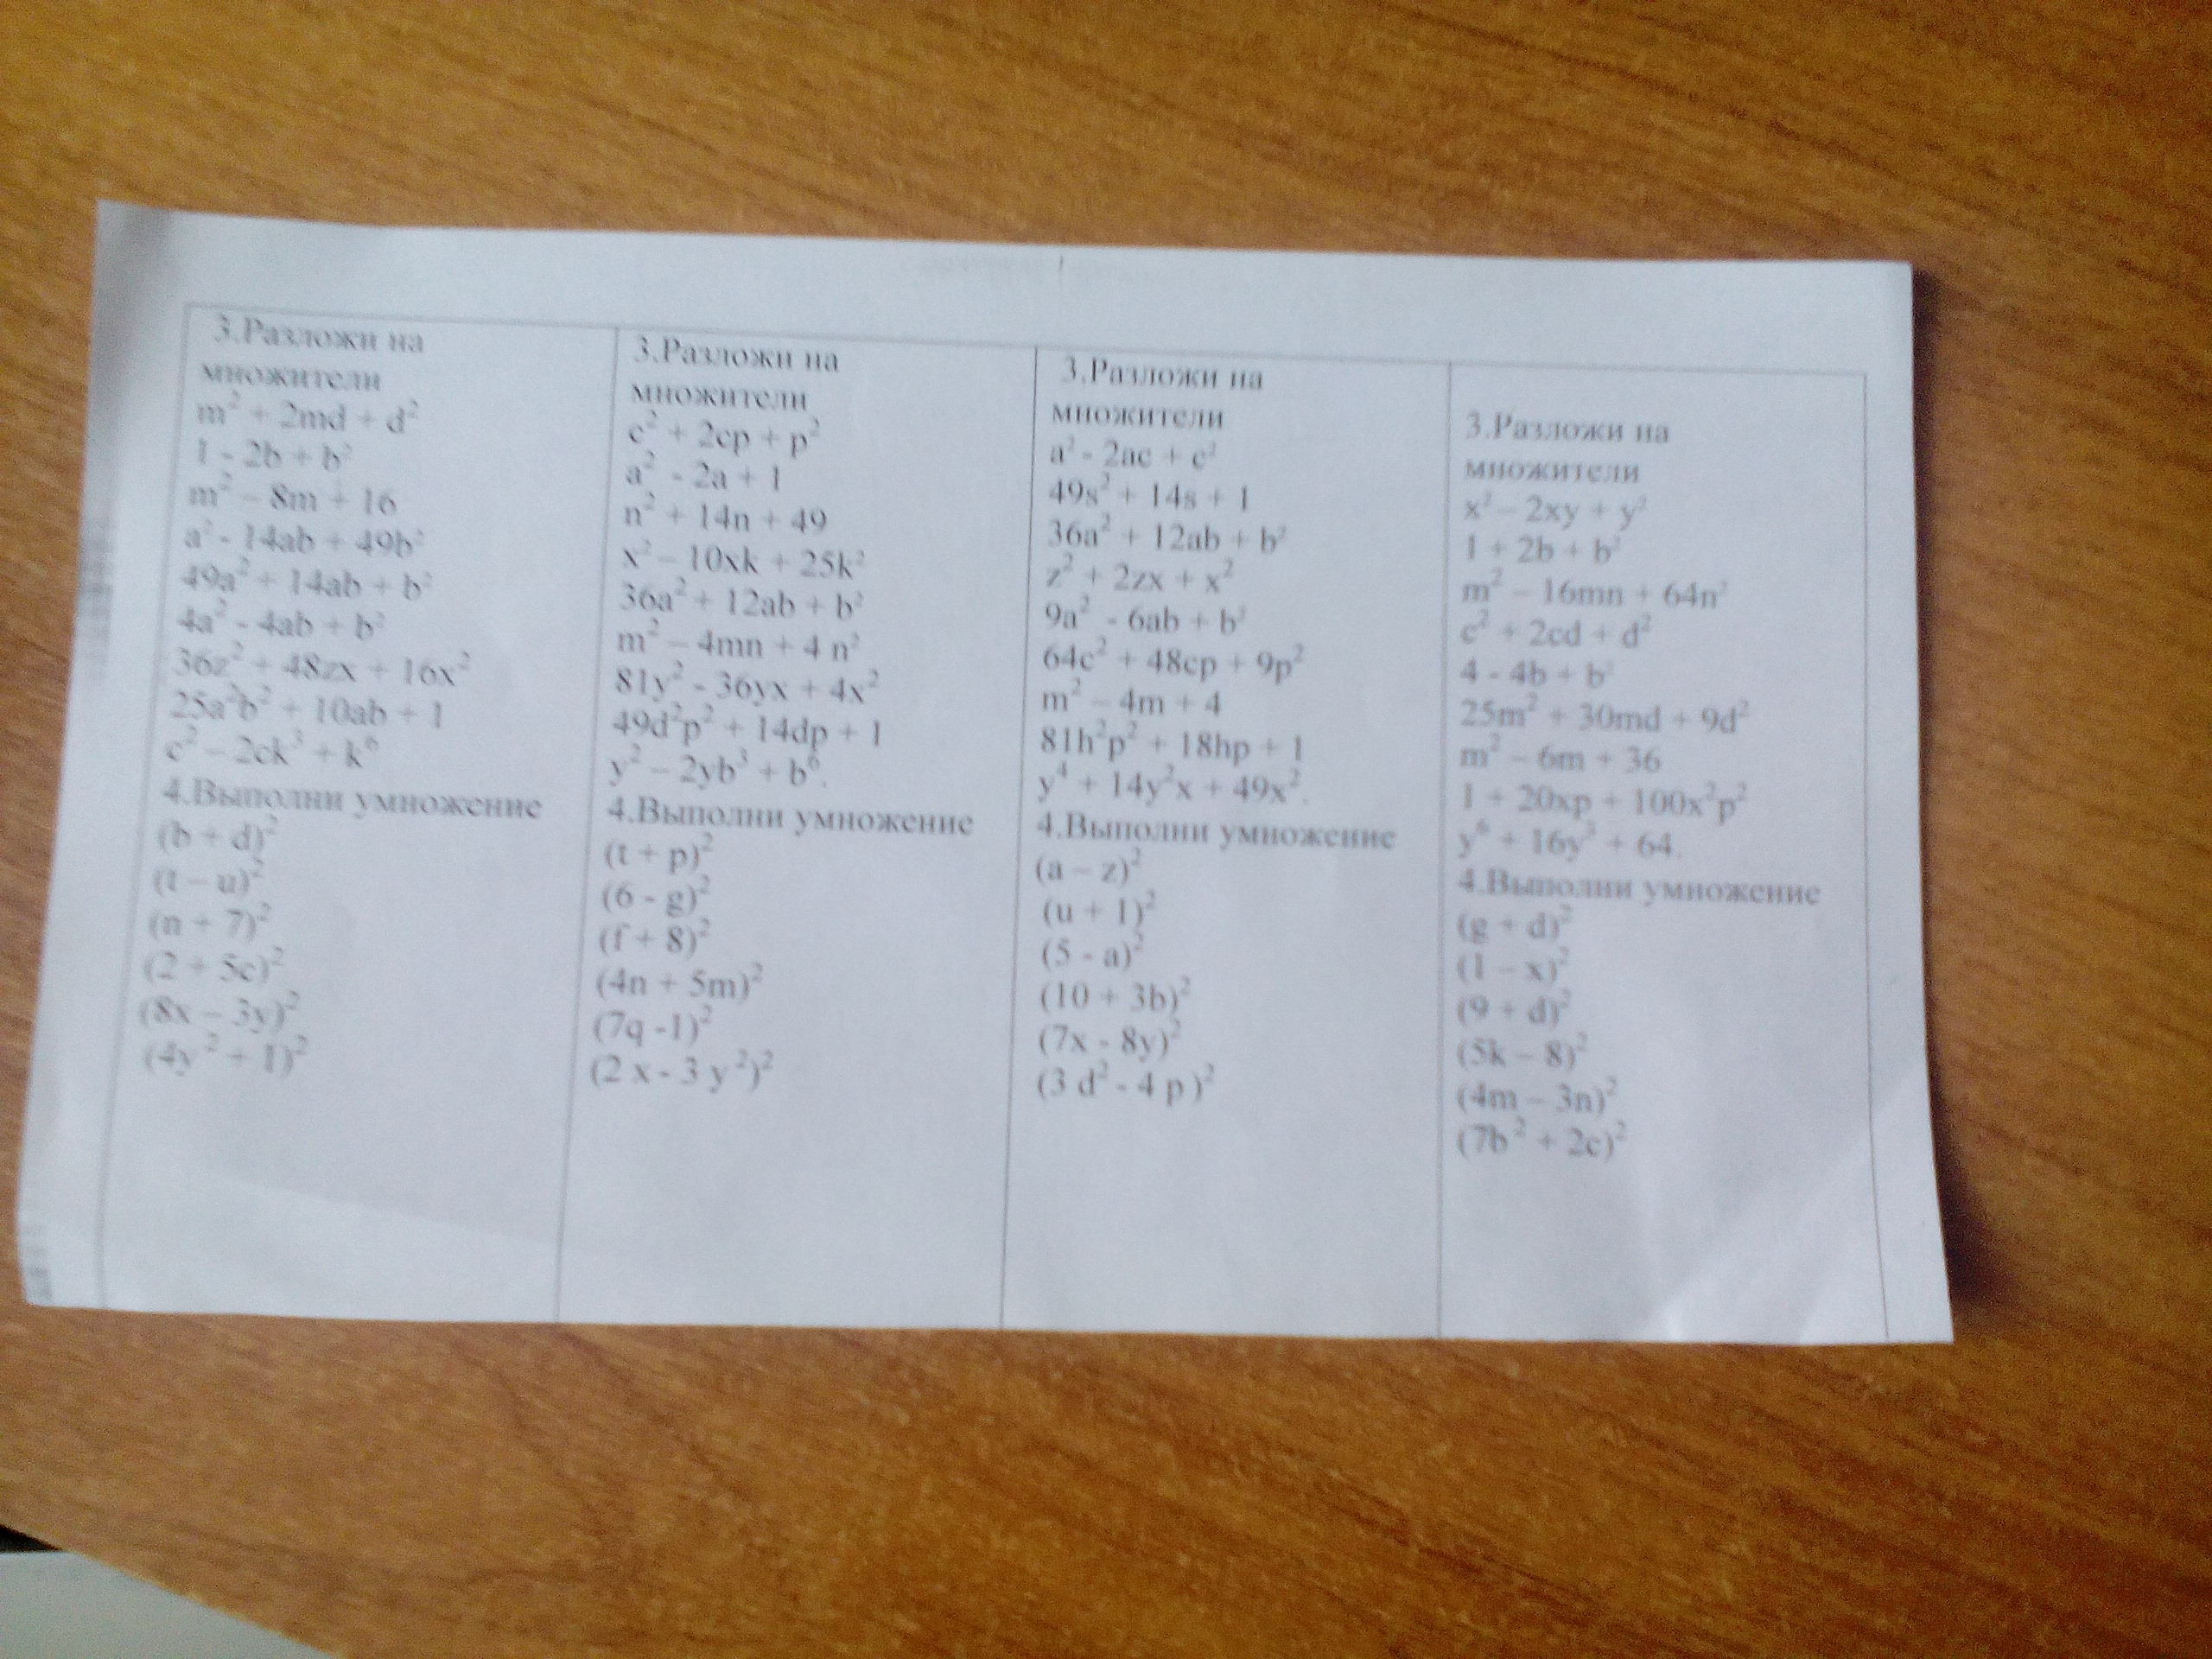 3.Разложи на
множители
m² + 2md + d²
1 - 2b + b²
m² – 8m + 16
a² - 14ab + 49b²
49a² + 14ab + b²
4a² - 4ab + b²
36z² + 48zx + 16x²
25a²b² + 10ab + 1
c² – 2ck³ + k⁶
4.Выполни умножение
(b + d)²
(t – u)²
(n + 7)²
(2 + 5c)²
(8x – 3y)²
(4y² + 1)²
3.Разложи на
множители
c² + 2cp + p²
a² - 2a + 1
n² + 14n + 49
x² – 10xk + 25k²
36a² + 12ab + b²
m² – 4mn + 4 n²
81y² - 36yx + 4x²
49d²p² + 14dp + 1
y² – 2yb³ + b⁶.
4.Выполни умножение
(t + p)²
(6 - g)²
(f + 8)²
(4n + 5m)²
(7q -1)²
(2 x - 3 y²)²
3.Разложи на
множители
a² - 2ac + c²
49s² + 14s + 1
36a² + 12ab + b²
z² + 2zx + x²
9a² - 6ab + b²
64c² + 48cp + 9p²
m² – 4m + 4
81h²p² + 18hp + 1
y⁴ + 14y²x + 49x².
4.Выполни умножение
(a – z)²
(u + 1)²
(5 - a)²
(10 + 3b)²
(7x - 8y)²
(3 d² - 4 p )²
3.Разложи на
множители
x² – 2xy + y²
1 + 2b + b²
m² – 16mn + 64n²
c² + 2cd + d²
4 - 4b + b²
25m² + 30md + 9d²
m² – 6m + 36
1 + 20xp + 100x²p²
y⁶ + 16y³ + 64.
4.Выполни умножение
(g + d)²
(1 – x)²
(9 + d)²
(5k – 8)²
(4m – 3n)²
(7b² + 2c)²